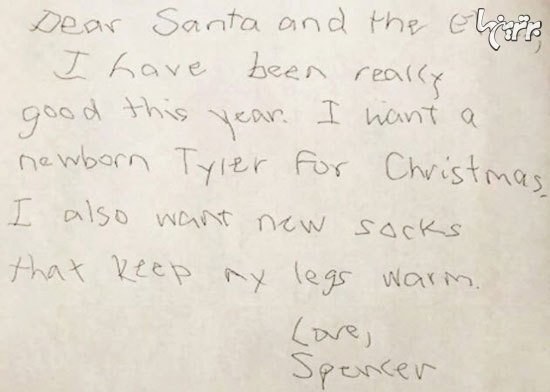 Dear Santa and the
I have been really
good this year. I want a
newborn Tyler For Christmas.
I also want new socks
that keep my legs warm.
Love,
Spencer